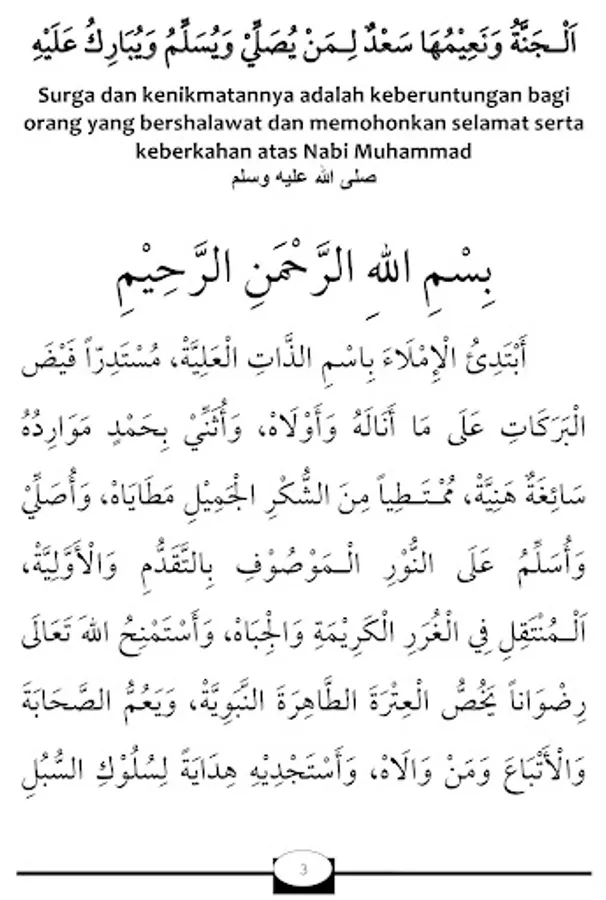 اَلْـجَنَّةُ وَنَعِيْمُهَا سَعْدٌ لِـمَنْ يُصَلِّيْ وَيُسَلِّمُ وَيُبَارِكُ عَلَيْهِ
Surga dan kenikmatannya adalah keberuntungan bagi
orang yang bershalawat dan memohonkan selamat serta
keberkahan atas Nabi Muhammad
صلى الله عليه وسلم
بِسْمِ اللهِ الرَّحْمَنِ الرَّحِيْمِ
أَبْتَدِئُ الْإِمْلَاءَ بِاسْمِ الذَّاتِ الْعَلِيَّةْ، مُسْتَدِرّاً فَيْضَ
الْبَرَكَاتِ عَلَى مَا أَنَالَهُ وَأَوْلَاهْ، وَأُثَنِّيْ بِحَمْدٍ مَوَارِدُهُ
سَائِغَةٌ هَنِيَّةْ، مُمْـتَـطِياً مِنَ الشُّكْرِ الْجَمِيْلِ مَطَايَاهْ، وَأُصَلِّيْ
وَأُسَلِّمُ عَلَى النُّوْرِ الْـمَوْصُوْفِ بِالتَّقَدُّمِ وَالْأَوَّلِيَّةْ،
اَلْـمُنْتَقِلِ فِي الْغُرَرِ الْكَرِيْمَةِ وَالْجِبَاهْ، وَأَسْتَمْنِحُ اللهَ تَعَالَى
رِضْوَاناً يَخُصُّ الْعِتْرَةَ الطَّاهِرَةَ النَّبَوِيَّةْ، وَيَعُمُّ الصَّحَابَةَ
وَالْأَتْبَاعَ وَمَنْ وَالَاهْ، وَأَسْتَجْدِيْهِ هِدَايَةً لِسُلُوْكِ السُّبُلِ
3